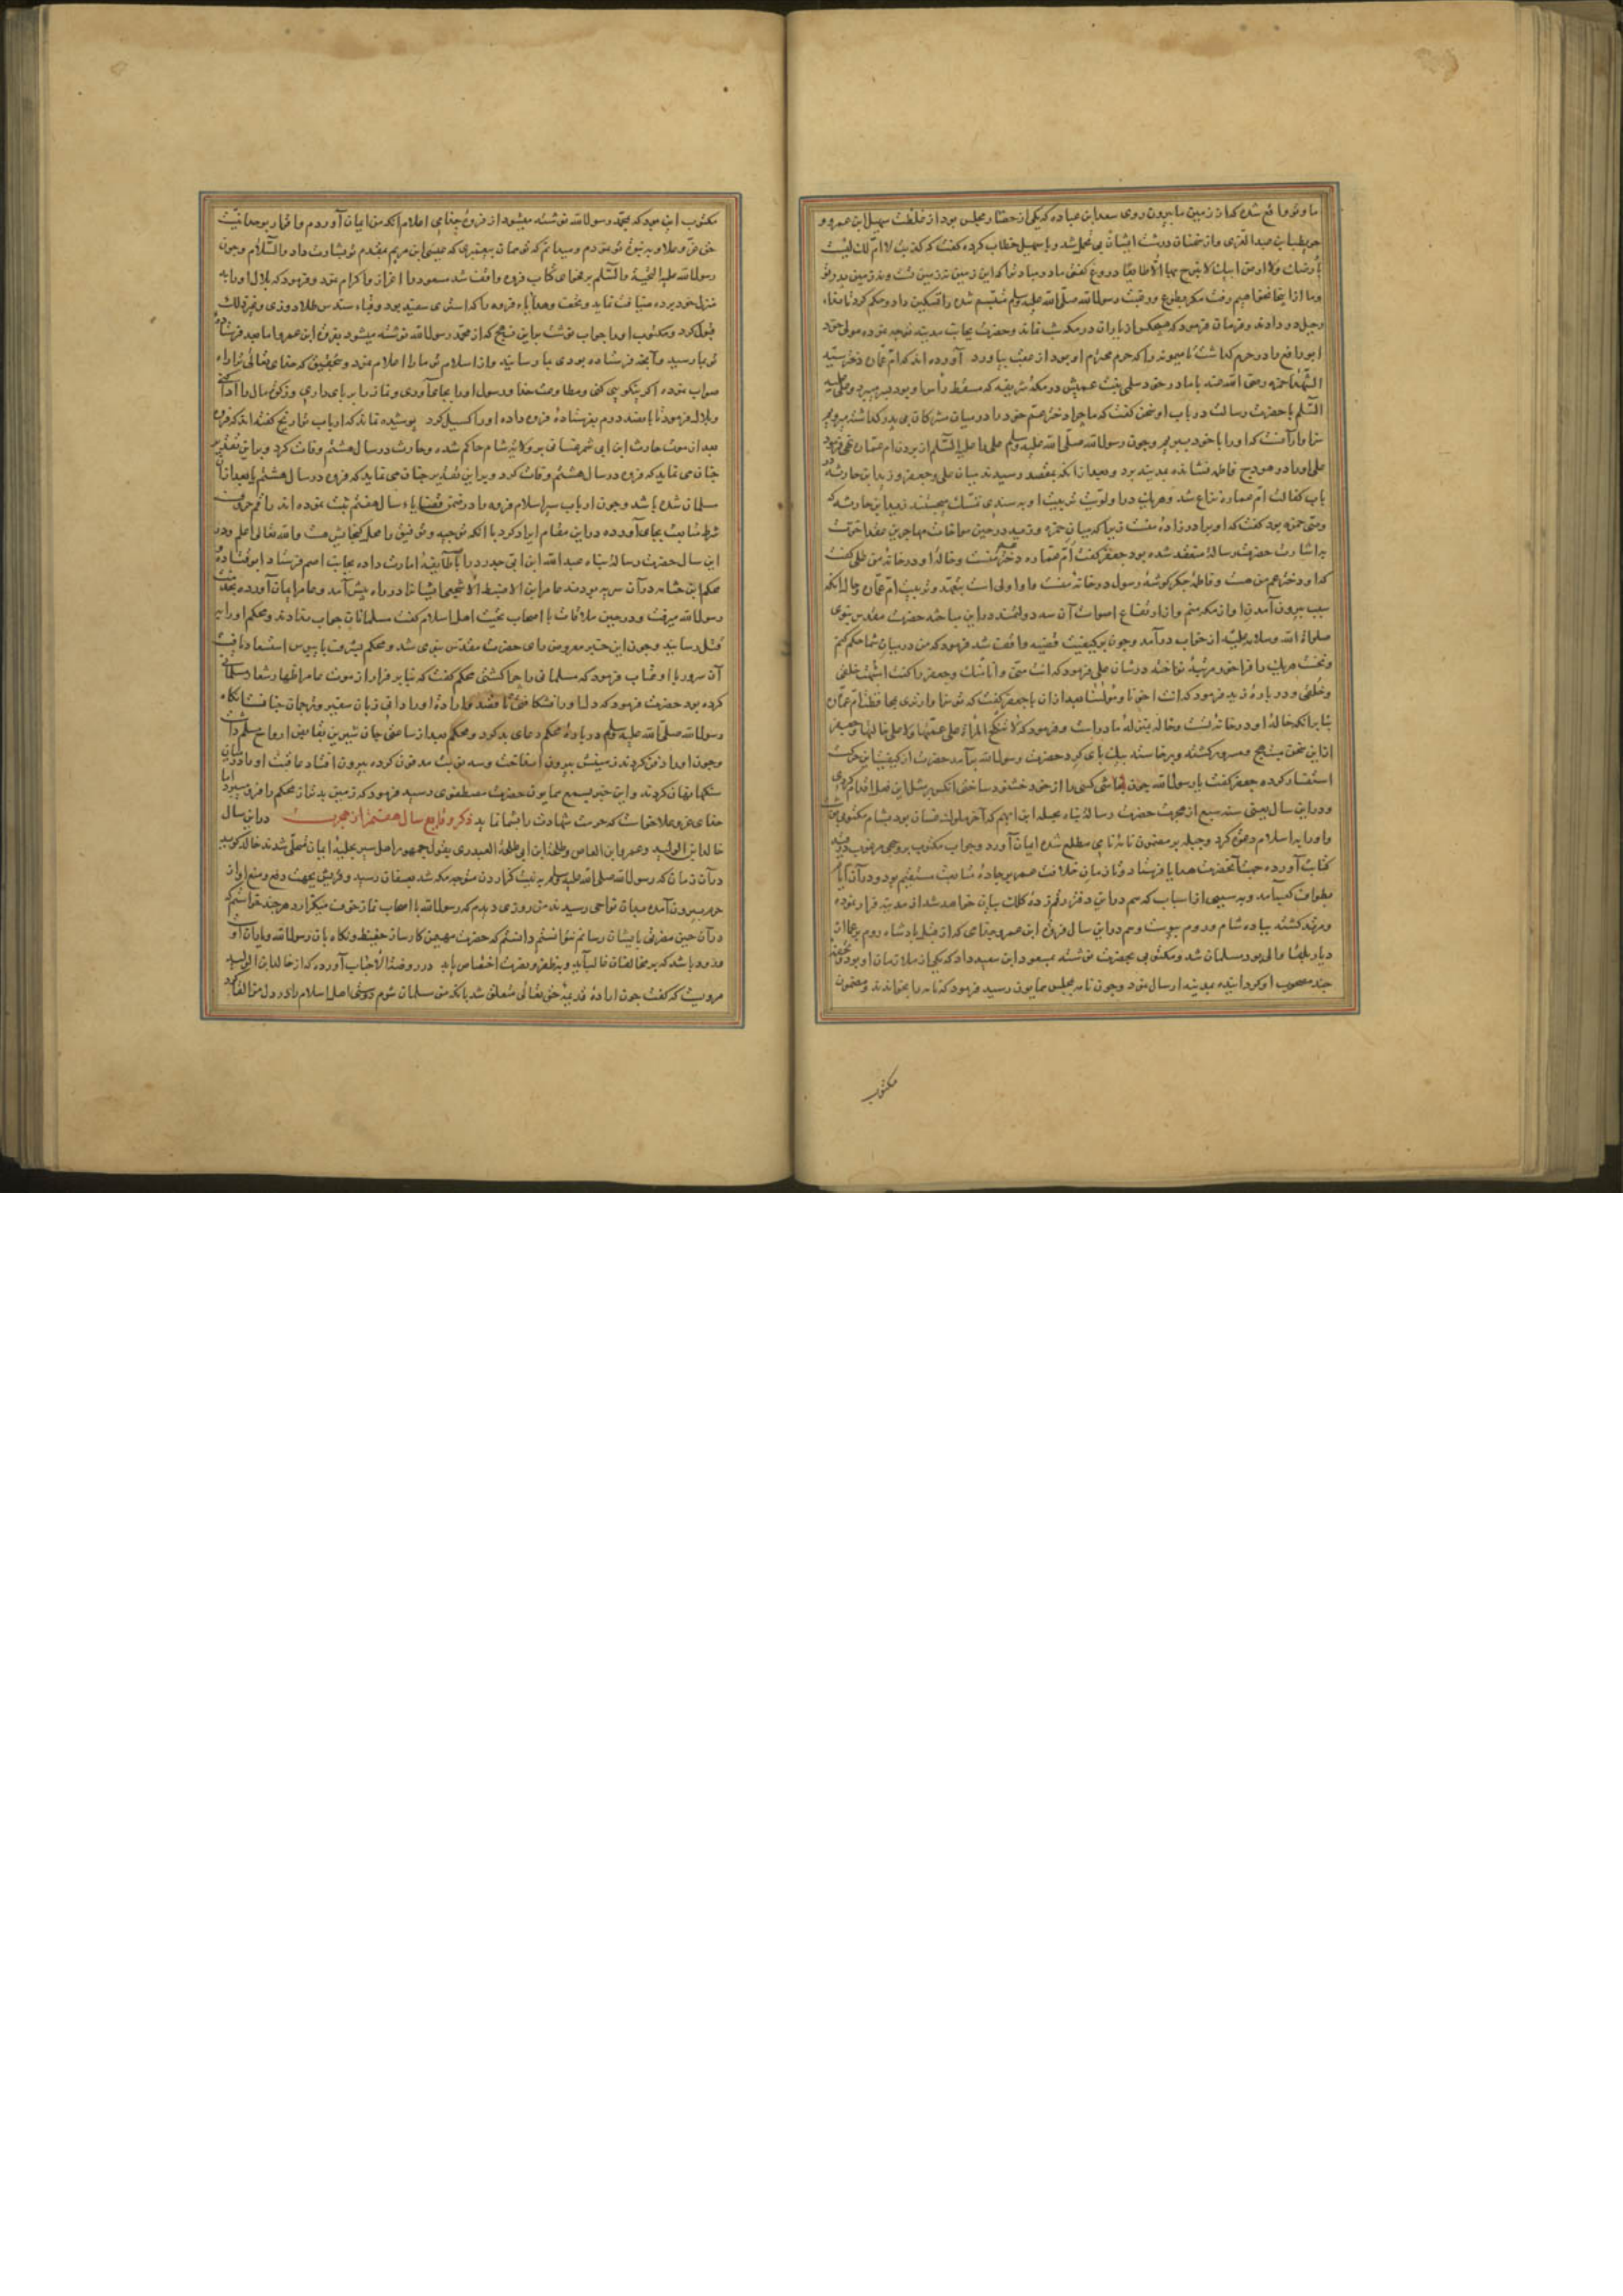 ما و تو واقع شده که از زمین ما بیرون روی سعد ابن عباده که یکی از حضار مجلس بود از غلظت سهیل ابن عمرو و
حویطب ابن عبد العزی و از سخنان درشت ایشان بی تحمل شد و با سهیل خطاب کرده گفت که کذبت لا ام لک لیست
بارضک ولا ارض ابیک لا یبرح منها الا طایعا دروغ گفتی مادر مباد ترا که این زمین نه زمین تست و نه زمین پدر تو
وما ازاینجا نخواهیم رفت مکر بطوع و رغبت رسول الله صلی الله علیه وسلم متبسم شده را تسکین داد و حکم کرد تا نداء
رحیل در دادند و فرمان فرمود که هیچکس از یاران در مکه شب نماند و حضرت بجانب مدینه توجه نموده مولی خود
ابو رافع را در حرم کذاشت تا میمونه را که حرم محترم او بود از عقب بیاورد آورده اند که ام عماره دختر سید
الشهدا حمزه رضی الله عنه با مادر خود سلمی بنت عمیس در مکه شریفه که مسقط رأس او بود بسر میبرد و علی علیه
السلم با حضرت رسالت در باب او سخن گفت که ما چرا دختر عم خود را در میان مشرکان بی پدر کذاشته میرویم
سزاوار آنست که او را با خود ببریم و چون رسول الله صلی الله علیه وسلم علی را علیه السلم از بردن ام عماره نهی نفرمود
علی او را در هودج فاطمه نشانده بمدینه برد و بعد از آنکه بمقصد رسیدند میان علی و جعفر و زید ابن حارثه در
باب کفالت ام عماره نزاع شد و هریک در اولویت تربیت او بسندی تمسک میجستند زید ابن حارثه که
وصی حمزه بود گفت که او برادرزاده منست زیرا که میان حمزه و زید در حین مواخات مهاجرین عقد اخوت
به اشارت حضرت رسالة منعقد شده بود جعفر گفت ام عماره دختر عم منست و خاله او در خانه من علی گفت
که او دختر عم من هست و فاطمه جکر کوشه رسول در خانه منست و ما اولی است بتعهد و تربیت ام عماره و حال انکه
سبب بیرون آمدن او از مکه منم و از ارتفاع اصوات آن سه دولتمند در این مباحثه حضرت مقدس نبوی
صلوات الله وسلامه علیه از خواب درآمد و چون بر کیفیت قضیه واقف شد فرمود که من در میان شما حکم کنم
و نخست هریک را فراخور مرتبه نواخته در شان علی فرمود که انت منی وانا منک و جعفر را گفت اشبهت خلقی
وخلقی و در باره زید فرمود که انت اخونا ومولنا بعد از ان با جعفر گفت که تو سزاوارتری بمحافظت ام عماره
بنا بر آنکه خاله او در خانه تست و خاله بمنزله مادر است و فرمود که لا تنکح المراة علی عمتها ولا علی خالتها و جعفر
از این سخن مبتهج و مسرور کشته و برخاسته بیک پای کرد حضرت رسول الله بر آمد حضرت از کیفیت این حرکت
استفسار کرده جعفر گفت یا رسول الله چون نجاشی کسی را از خود خشنود ساختی انکس بر مثل این فعل اقدام کردی
و در این سال یعنی سنه سبع از هجرت حضرت رسالة پناه بجبله ابن ایهم که آخر ملوک غسان بود بشام مکتوبی نوشت
و او را به اسلام دعوت کرد و جبله بر مضمون نامه نامی مطلع شده ایمان آورد و جواب مکتوب بر وجهی مرغوب در قید
کتابت آورده جهت آنحضرت هدایا فرستاد و تا زمان خلافت عمر بر جاده متابعت مستقیم بود و در آن ایام
بطواف کعبه آمد و به سببی از اسباب که هم در این دفتر رقم زده کلک بیان خواهد شد از مدینه فرار نموده
و مرتد کشته به پادشاه شام و روم پیوست و هم در این سال فروة ابن عمرو جذامی که از قبل پادشاه روم بر عمان
دیار بلقا والی بود مسلمان شد و مکتوبی بحضرت نوشته بمسعود ابن سعید داد که یکی از ملازمان او بود و تحفه
چند مصحوب او کردانیده بمدینه ارسال نمود و چون نامه بمجلس همایون رسید فرمود که نامه را بخوانند و مضمون
مکتوب
مکتوب این بود که بمحمد رسول الله نوشته میشود از فروة جذامی اعلام آنکه من ایمان آوردم و اقرار بوحدانیت
حق عز وعلا و به نبوت تو نمودم و میدانم که تو همان پیغمبری که عیسی ابن مریم بمقدم تو بشارت داد والسلام و چون
رسول الله علیه التحیة والسلم بر فحوای کتاب فروه واقف شد مسعود را اعزاز و اکرام نمود و فرمود که بلال او را به
منزل خود برده ضیافت نماید و تحف و هدایاء فروه را که استری سفید بود و قباء سندس طلا دوزی و غیر ذلک
قبول کرد و مکتوب او را جواب نوشت باین نهج که از محمد رسول الله نوشته میشود بفروة ابن عمرو اما بعد فرستاده
تو بما رسید و آنچه فرستاده بودی بما رسانید و از اسلام تو ما را اعلام نمود و بتحقیق که خدای تعالی ترا راه
صواب نموده اگر نیکویی کنی و مطاوعت خدا و رسول او را بجا آوری و نماز را بر پای داری و زکوة مال را ادا کنی
و بلال فرمود تا پانصد درم بفرستاده فروه داده او را کسیل کرد پوشیده نماند که ارباب تواریخ گفته اند که فروه
بعد از موت حارث ابن ابی شمر غسانی بر ولایة شام حاکم شده و حارث در سال هشتم وفات کرد و بر این تقدیر
چنان می نماید که فروه در سال هشتم وفات کرد و بر این تقدیر چنان می نماید که فروه در سال هشتم یا بعد از آن
مسلمان شده باشد و چون ارباب سیر اسلام فروه را در ضمن قضایاء سال هفتم ثبت نموده اند راقم حروف
شرط متابعت بجای آورده در این مقام ایراد کرد با آنکه توجیه و توفیق را محل گنجایش هست والله تعالی اعلم و در
این سال حضرت رسالة پناه عبد الله ابن ابی حدرد را با طایفه امارت داده بجانب اضم فرستاد ابو قتاده
محکم ابن جثامه در آن سریه بودند عامر ابن الاضبط الاشجعی ایشانرا در راه پیش آمد و عامر ایمان آورده بخدمت
رسول الله میرفت و در حین ملاقات با اصحاب تحیت اهل اسلام گفت مسلمانان جواب ندادند و محکم او را به
قتل رسانید و چون این خبر معروض رای حضرت مقدس نبوی شد و محکم بشرف پابوس استسعاد یافت
آن سرور با او عتاب فرمود که مسلمانی را چرا کشتی محکم گفت که بنا بر فرار از موت عامر اظهار شعار مسلمانی
کرده بود حضرت فرمود که دل او را نشکافتی تا قصد و ارادة او را دانی زبان سفیر و ترجمان جنانست انکاه
رسول الله صلی الله علیه وسلم در بارۀ محکم دعای بد کرد و محکم بعد از ساعتی جان شیرین بقابض ارواح تسلیم داشت
و چون او را دفن کردند زمینش بیرون انداخت و سه نوبت مدفون کرده بیرون افتاد عاقبت او را در میان
سنکها نهان کردند و این خبر بسمع همایون حضرت مصطفوی رسید فرمود که زمین بدتر از محکم را فرو میبرد اما
خدای عز وعلا خواست که حرمت شهادت را بشما نماید ذکر وقایع سال هشتم از هجرت در این سال
خالد ابن الولید و عمرو ابن العاص و طلحة ابن ابی طلحة العبدری بقول جمهور اهل سیر بحلیة ایمان متحلی شدند خالد گوید
در آن زمان که رسول الله صلی الله علیه وسلم به نیت گزاردن متوجه مکه شد بعسفان رسید و قریش بجهت دفع و منع او از
حرم بیرون آمده میان نواحی رسیدند من روزی دیدم که رسول الله با اصحاب نماز خوف میکزارد هر چند خواستم که
در آن حین مضرتی بایشان رسانم نتوانستم دانستم که حضرت مهیمن کارساز حفیظ و نکاه بان رسول الله و یاران او
و زود باشد که بر مخالفان غالب آید و به ظفر و نصرت اختصاص یابد در روضة الاحباب آورده که از خالد ابن الولید
مرویست که گفت چون ارادة قدیمة حق تعالی متعلق شد بانکه من مسلمان شوم دوستی اهل اسلام را در دل من القا کرد